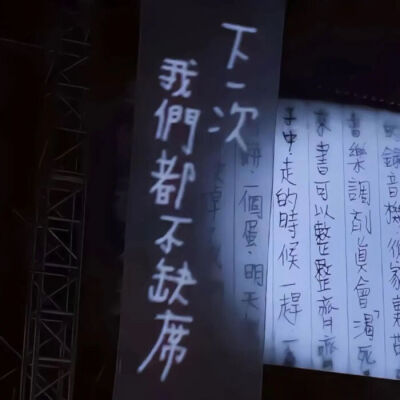 下一次
我們都不缺席
錄音機，從家裏
音樂調劑真會「渴死
來書可以整整齊齊
子中，走的時候一趕
餅，一個蛋，明天